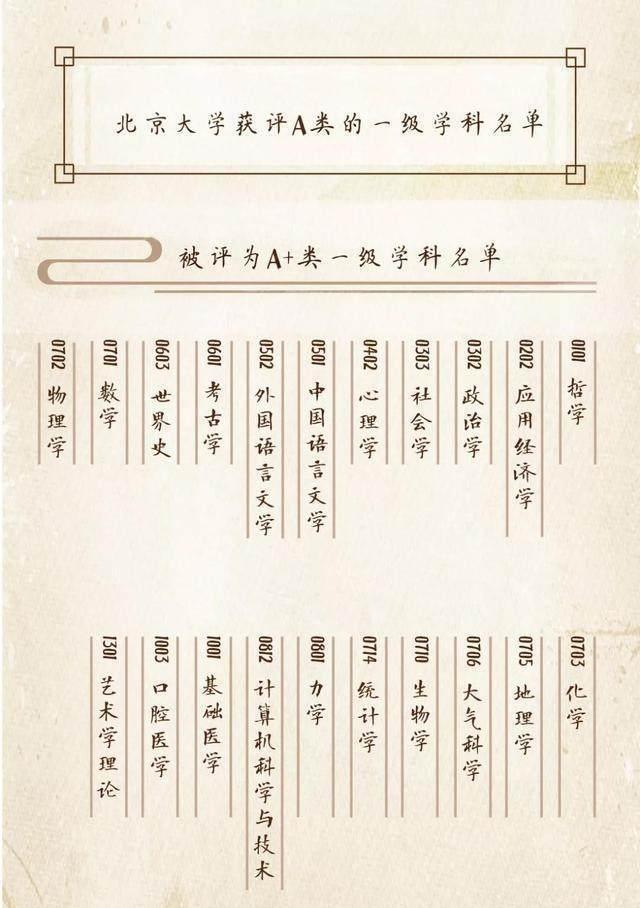 北京大学获评A类的一级学科名单
被评为A+类一级学科名单
0101 哲学
0202 应用经济学
0302 政治学
0303 社会学
0402 心理学
0501 中国语言文学
0502 外国语言文学
0601 考古学
0603 世界史
0701 数学
0702 物理学
0703 化学
0705 地理学
0706 大气科学
0710 生物学
0714 统计学
0801 力学
0812 计算机科学与技术
1001 基础医学
1003 口腔医学
1301 艺术学理论